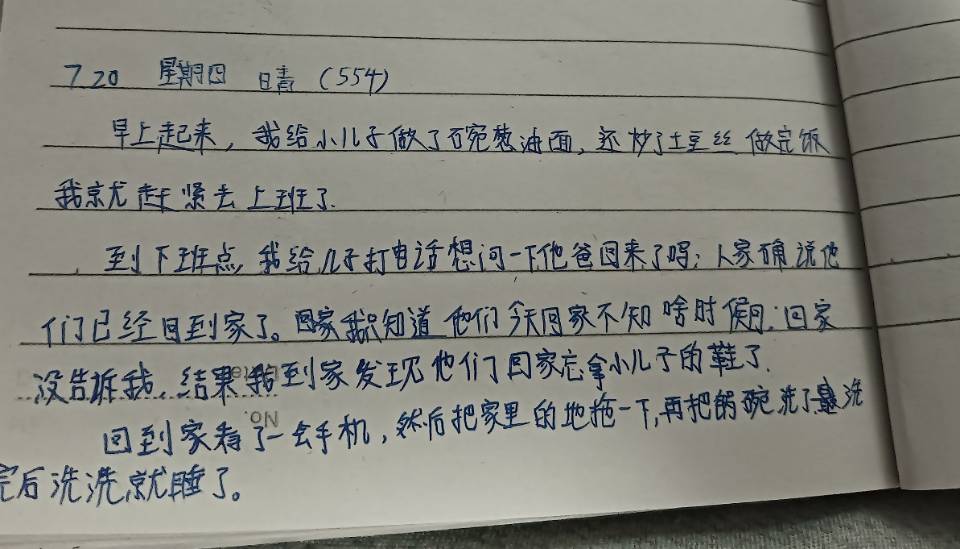 7.20 星期四 晴 (554)
早上起来, 我给小儿子做了碗葱油面, 还炒了土豆丝 做完饭
我就赶紧去上班了.
到下班点, 我给儿子打电话想问一下他爸回来了吗; 人家确说他
们已经回到家了。回家我只知道他们今天回家不知啥时候回; 回家
没告诉我, 结果我到家发现他们回家忘拿小儿子的鞋了.
回到家看了一会手机, 然后把家里的地拖一下, 再把锅碗洗了 洗
完后洗洗就睡了。
No.